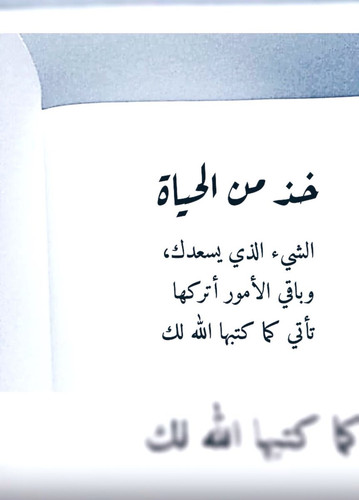 خذ من الحياة
الشيء الذي يسعدك،
وباقي الأمور أتركها
تأتي كما كتبها الله لك
كما كتبها الله لك